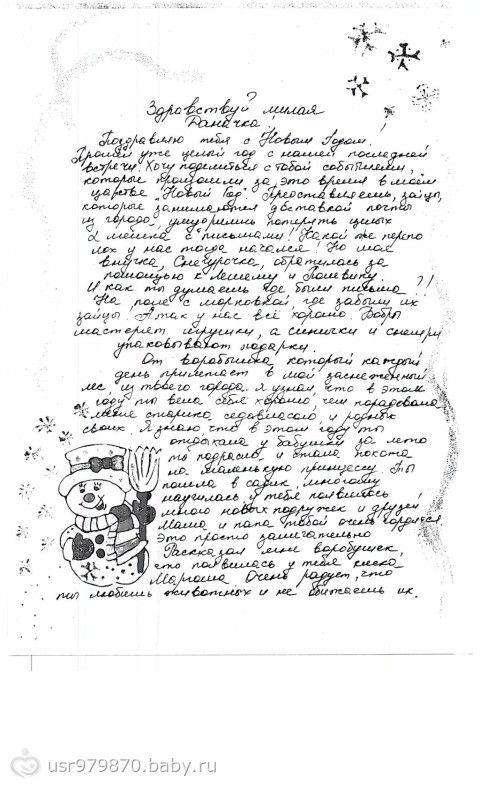 Здравствуй милая
Даначка!
Поздравляю тебя с Новым Годом!
Прошел уже целый год с нашей последней
встречи. Хочу поделиться с тобой событиями,
которые произошли за это время в моём
царстве "Новый Год". Представляешь, зайцы,
которые занимаются доставкой почты
из города, умудрились потерять целых
2 мешка с письмами! Какой же перепо
лох у нас тогда начался! Но моя
внучка, Снегурочка, обратилась за
помощью к Лешему и
И как ты думаешь где были письма?!
На поле с морковкой, где забыли их
зайцы. А так у нас всё хорошо. Бобры
мастерят игрушки, а синички и снегири
упаковывают подарки.
От воробышка, который каждый
день прилетает в мой заснеженный
лес из твоего города. Я узнал, что в этом
году ты вела себя хорошо, чем порадовала
меня старика седовласого и родных
своих. Я знаю, что в этом году ты
отдыхала у бабушки за лето
ты подрасла, и стала похожа
на маленькую принцессу. Ты
пошла в садик, многому
научилась, у тебя появилось
много новых подружек и друзей
Мама и папа тобой очень гордятся
Это просто замечательно
Рассказал мне воробушек,
что появилась у тебя киска
Маргоша. Очень радует, что
ты любишь животных и не обижаешь их.
usr979870.baby.ru